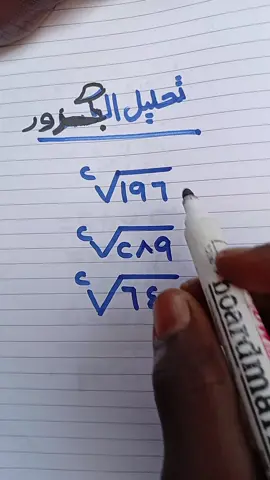 تحليل الجذور
٢√١٩٦
٢√٢٨٩
٢√٦٤
boardma